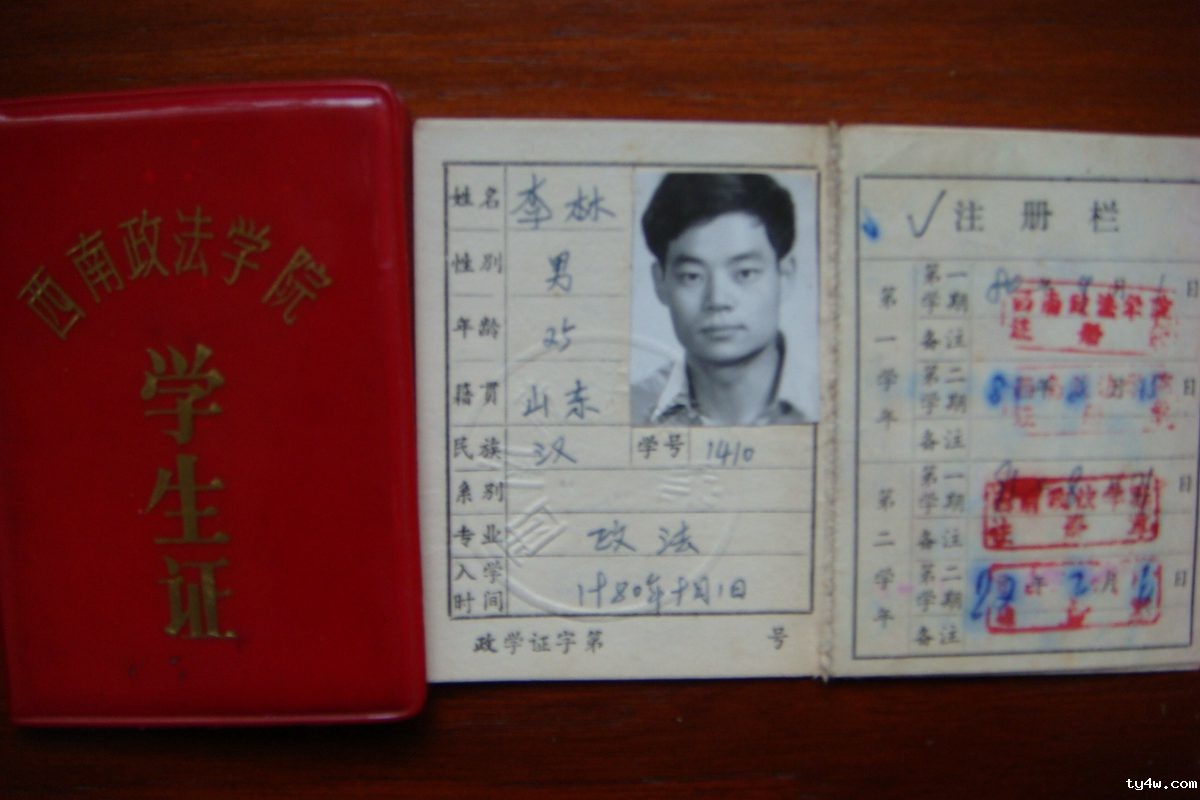 西南政法学院
学生证
姓名 李林
性别 男
年龄 25
籍贯 山东
民族 汉 学号 1410
系别
专业 政法
入学时间 1980年十月1日
政学证字第 号
✓注册栏
第一学年
第一学期 80 日
西南政法学院
注册
备注
第二学期 日
备注
第二学年
第一学期 81 8 日
注册
备注
第二学期 82年2月 日
备注
ty4w.com